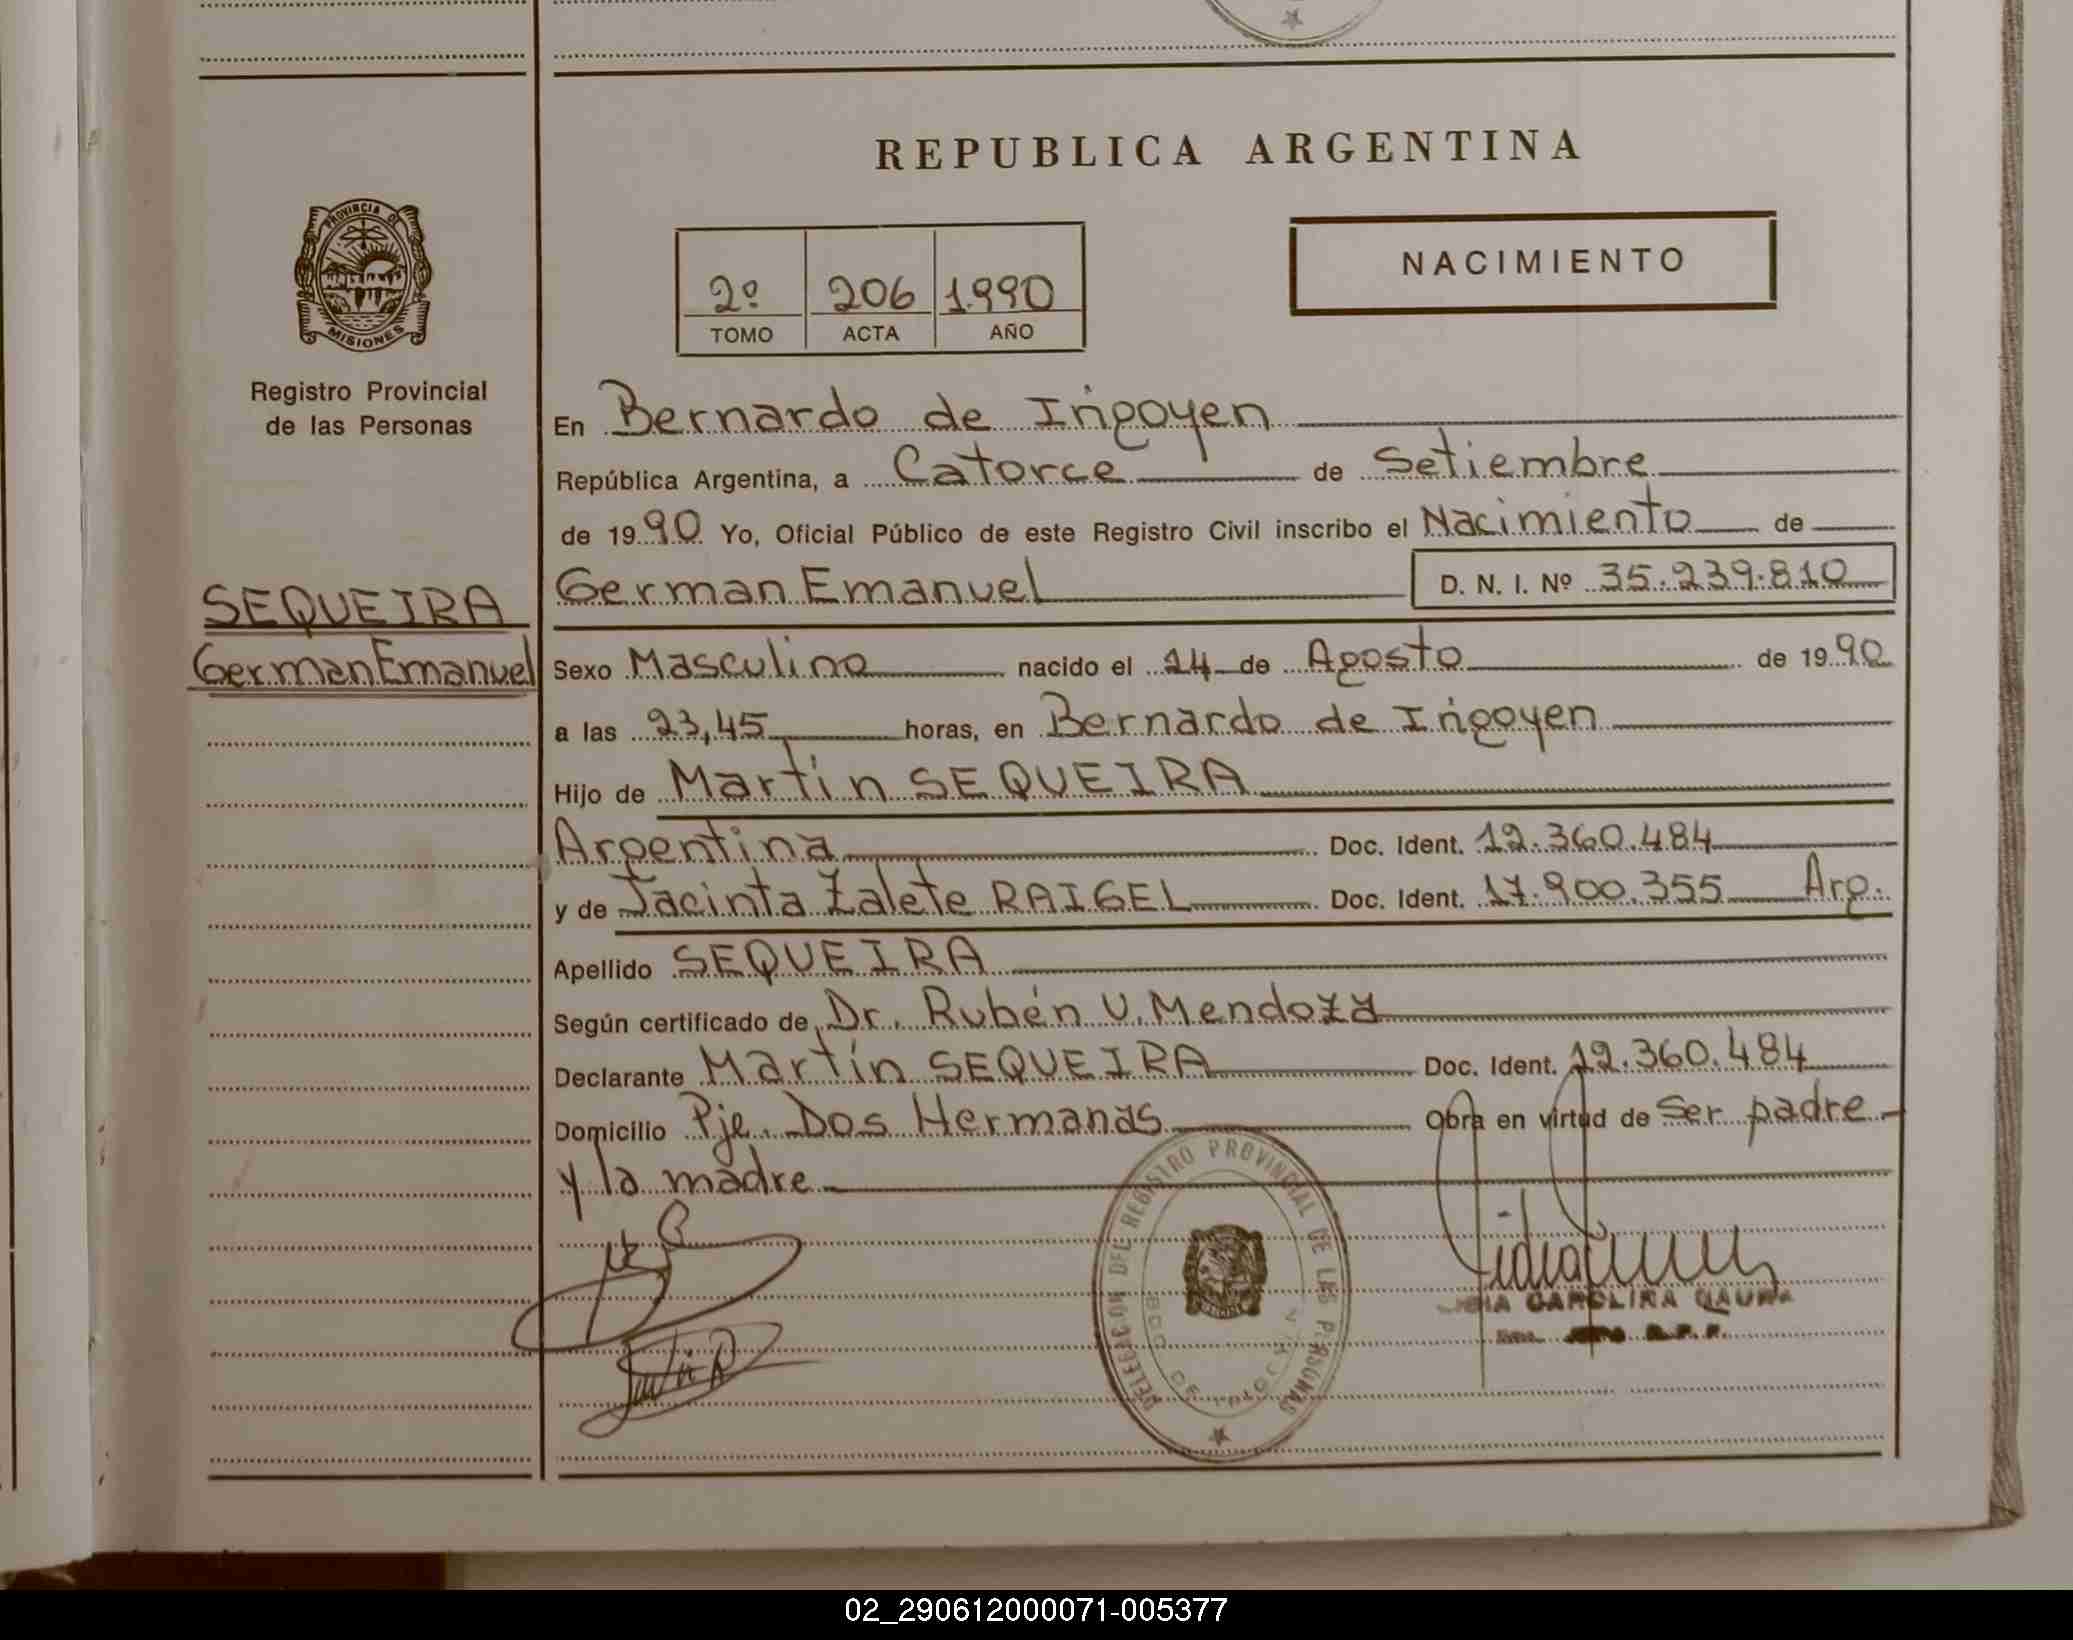 REPUBLICA ARGENTINA
PROVINCIA DE
MISIONES
Registro Provincial
de las Personas
2º 206 1.990
TOMO ACTA AÑO
NACIMIENTO
En Bernardo de Irigoyen
República Argentina, a Catorce de Setiembre
de 1990 Yo, Oficial Público de este Registro Civil inscribo el Nacimiento de
SEQUEIRA
German Emanuel
German Emanuel D. N. I. Nº 35.239.810
Sexo Masculino nacido el 24 de Agosto de 1990
a las 23,45 horas, en Bernardo de Irigoyen
Hijo de Martín SEQUEIRA
Argentina Doc. Ident. 12.360.484
y de Jacinta Zalete RAIGEL Doc. Ident. 17.900.355 Arg.
Apellido SEQUEIRA
Según certificado de Dr. Rubén V. Mendoza
Declarante Martín SEQUEIRA Doc. Ident. 12.360.484
Domicilio Pje. Dos Hermanas Obra en virtud de Ser padre
y la madre
DELEGACION DEL REGISTRO PROVINCIAL DE LAS PERSONAS
BDO. DE IRIGOYEN
CAROLINA
02_290612000071-005377